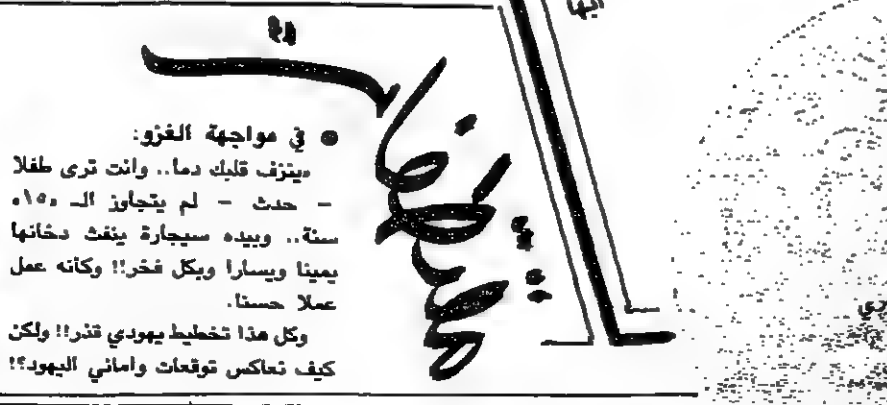 أيها
● في مواجهة الغزو:
«ينزف قلبك دما.. وانت ترى طفلا
- حدث - لم يتجاوز الـ «١٥»
سنة.. وبيده سيجارة ينفث دخانها
يمينا ويسارا وبكل فخر!! وكأنه عمل
عملا حسنا.
وكل هذا تخطيط يهودي قذر!! ولكن
كيف نعاكس توقعات واماني اليهود؟!
ري